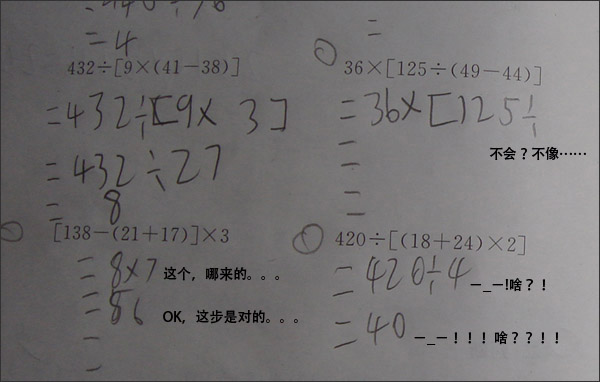 =4
=
432÷[9×(41-38)]
=432÷[9×3]
=432÷27
=8
36×[125÷(49-44)]
=36×[125÷
=
=
=
不会？不像……
[138-(21+17)]×3
=8×7 这个，哪来的。。。
=86 OK，这步是对的。。。
=
=
420÷[(18+24)×2]
=420÷4 -_-!啥？！
=40 -_-！！！啥？？！！